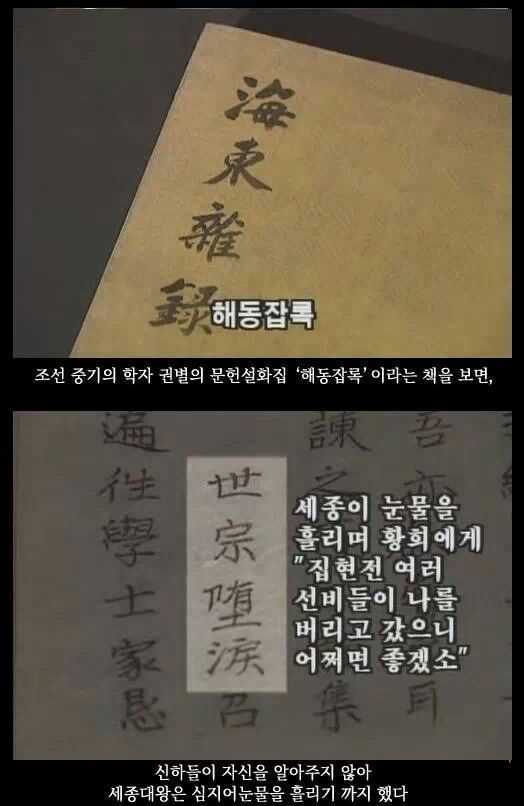 海東雜録
해동잡록
조선 중기의 학자 권별의 문헌설화집 '해동잡록' 이라는 책을 보면,
吾亦
諫之
集
世宗墮淚召
遍徃學士家懇
세종이 눈물을
흘리며 황희에게
"집현전 여러
선비들이 나를
버리고 갔으니
어쩌면 좋겠소"
신하들이 자신을 알아주지 않아
세종대왕은 심지어눈물을 흘리기 까지 했다